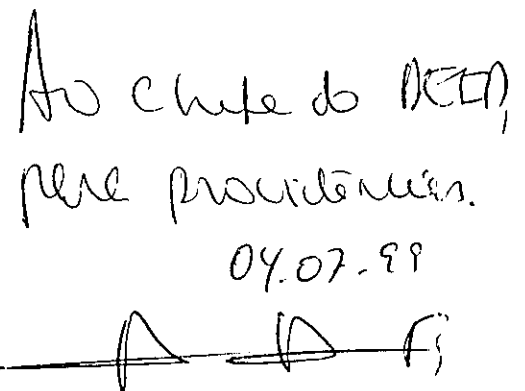 Ao Chefe do DEED,
para providências.
04.07.99